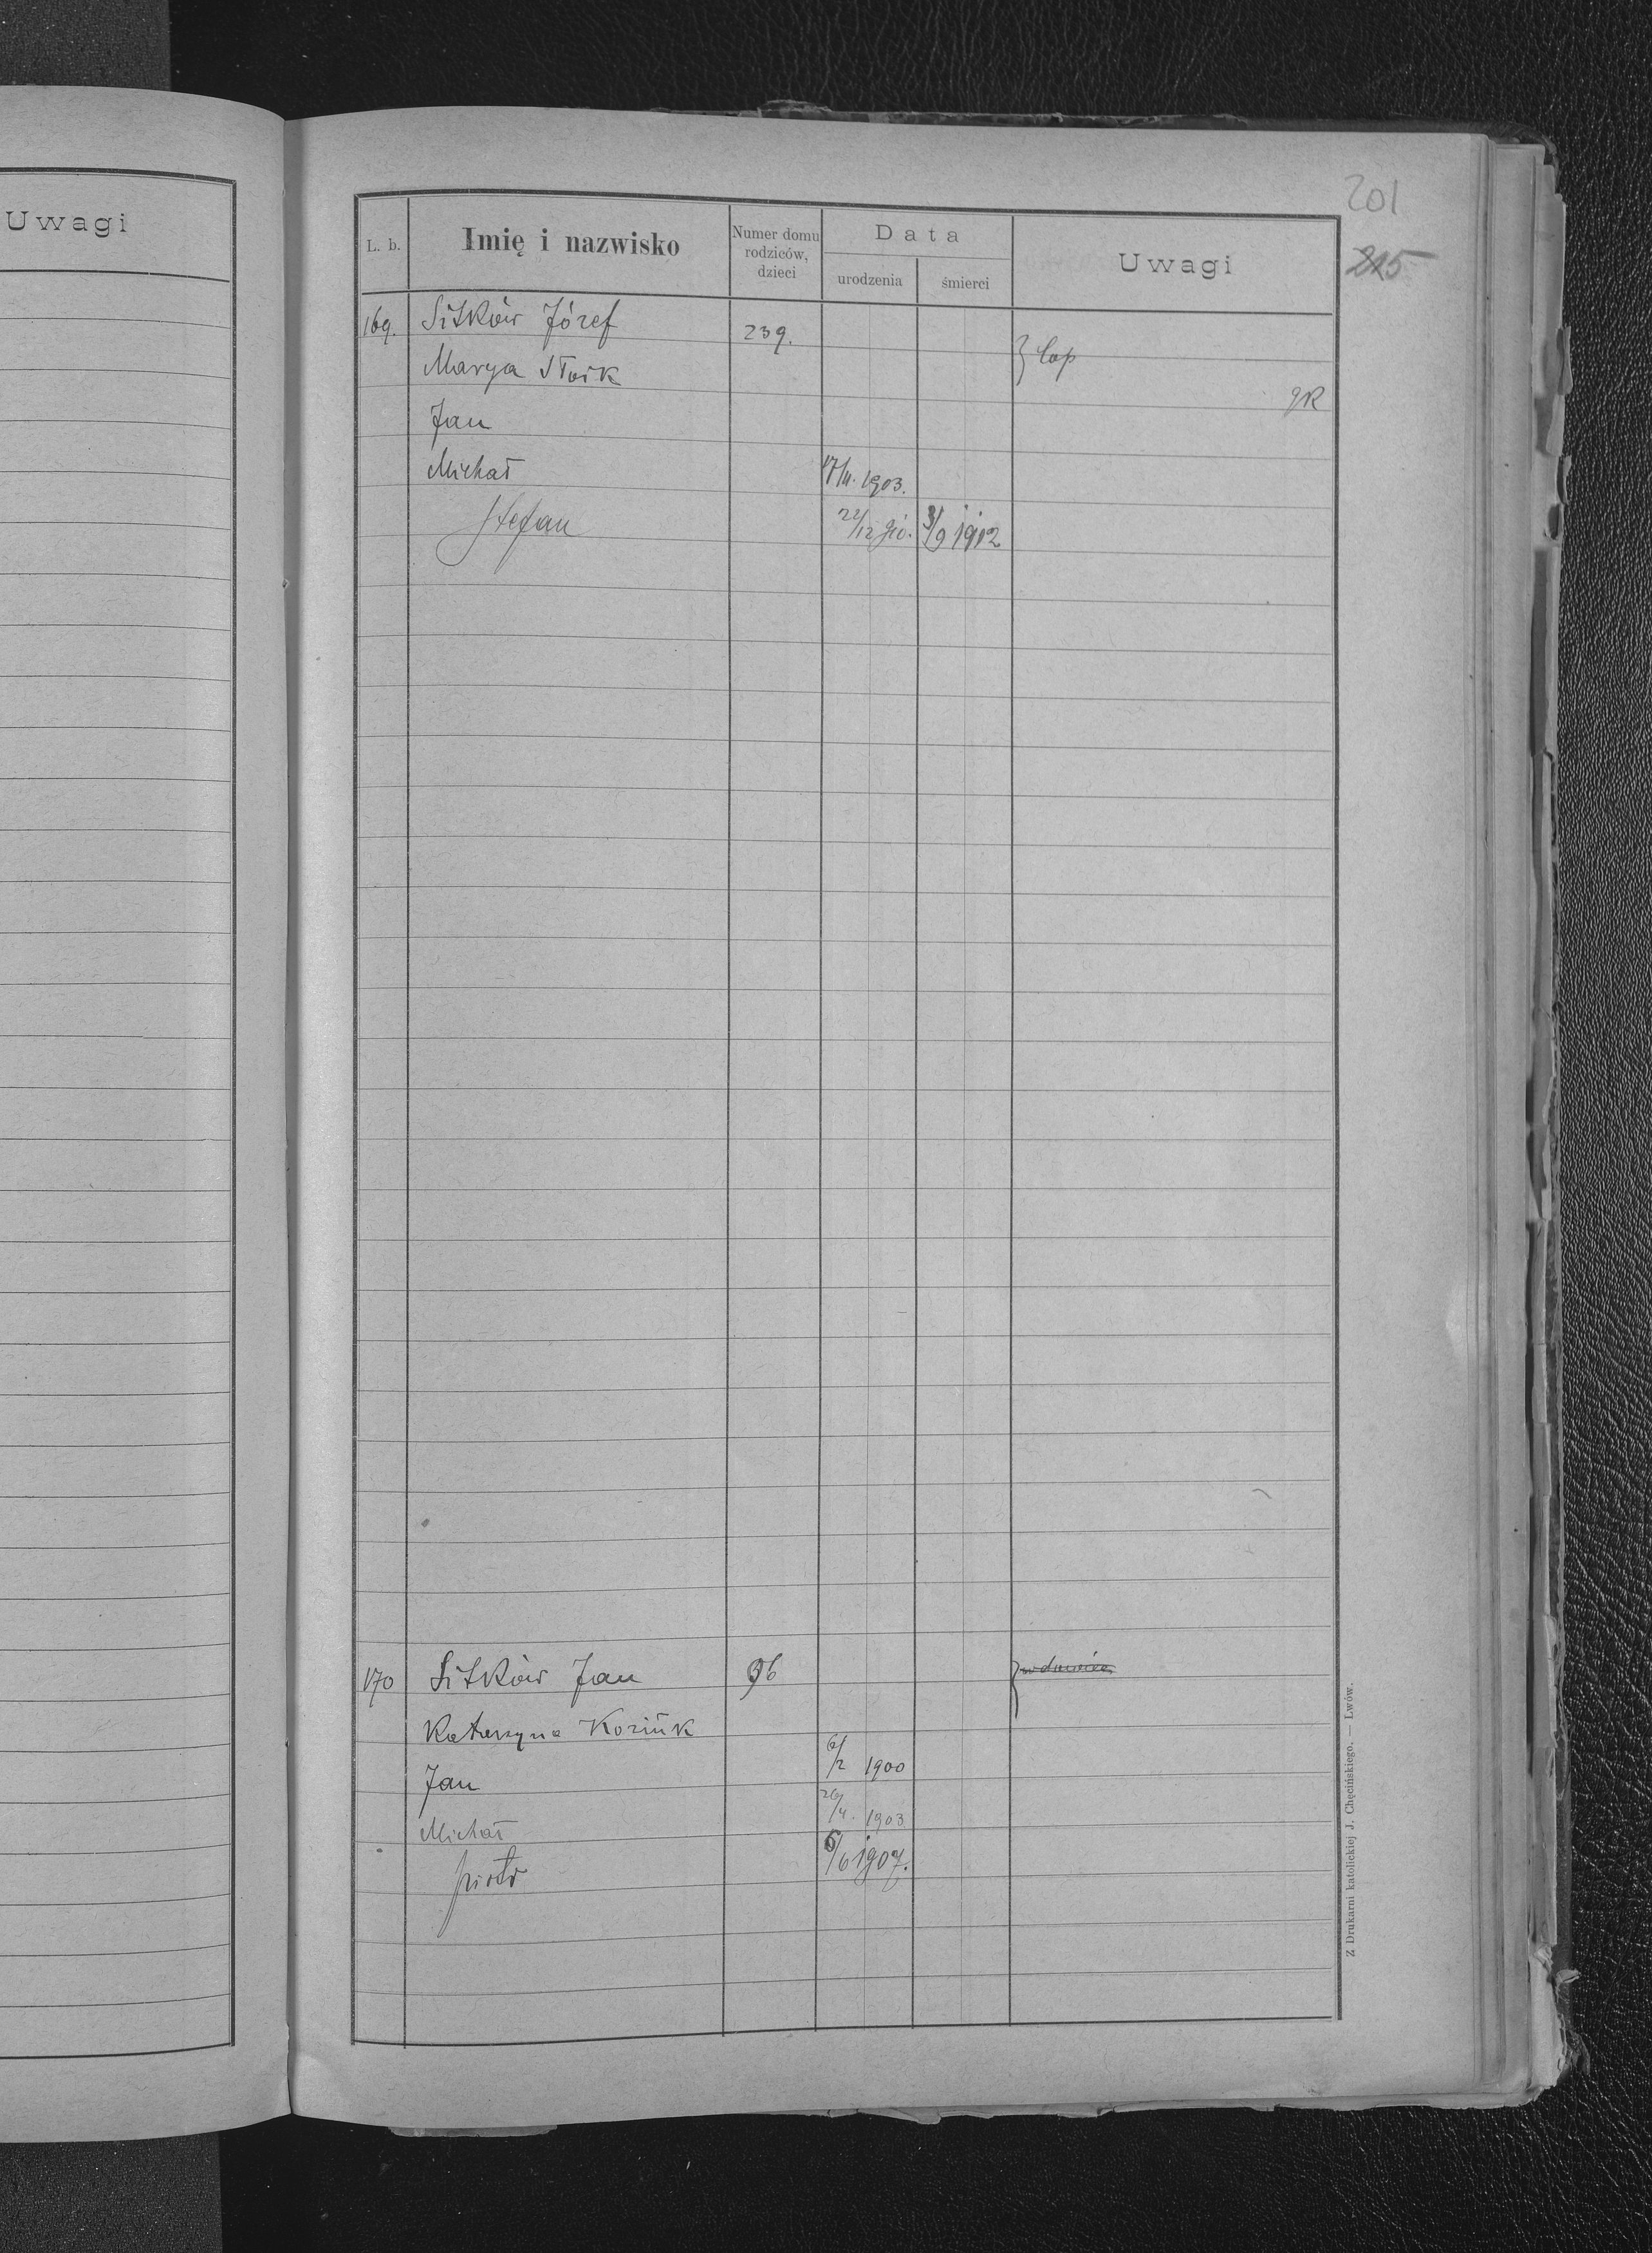 Uwagi
201
215
L. b.
Imię i nazwisko
Numer domu rodziców, dzieci
Data
urodzenia
śmierci
Uwagi
169. Sitków Józef 239.
Marya
gR
Jan
Michał 17/11. 1903.
Stefan 22/12 910. 3/9 1912
170 Sitków Jan 36
Katarzyna
Jan 6/2 1900
Michał 26/4. 1903
Piotr 6/6 1907.
Z Drukarni katolickiej J. Chęcińskiego. — Lwów.